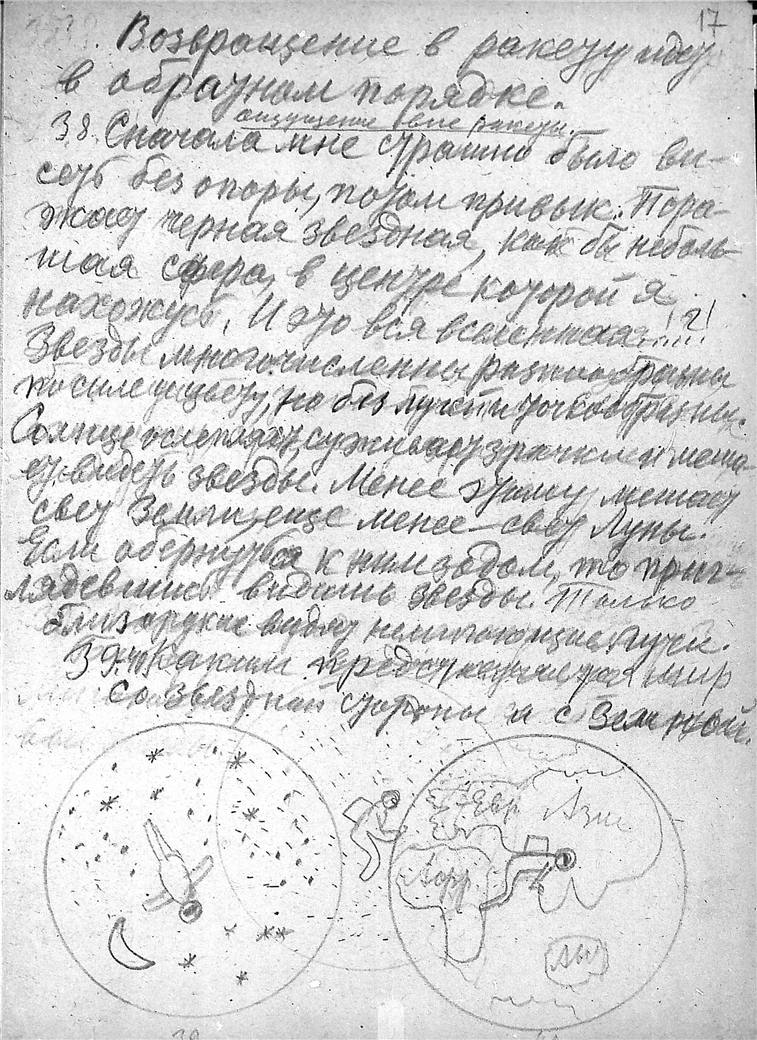 17
Возвращение в ракету идет
в обратном порядке.
ощущение вне ракеты.
38. Сначала мне страшно было ви-
сеть без опоры, потом привык. Пора-
жает черная звездная, как бы неболь-
шая сфера, в центре которой я
нахожусь. И это вся вселенная....!?!
Звезды многочисленны разнообразны
по силе и цвету, но без лучей и точкообразны.
Солнце ослепляет, суживает зрачки и меша-
ет видеть звезды. Менее этому мешает
свет Земли, еще менее – свет Луны.
Если обернуться к ним задом, то приг-
лядевшись видишь звезды. Только
близорукие видят немигающие лучи.
39-40 Каким представляется мир
со звездной стороны и с Земной.
Евр Азия
Афр
Ав
39
40